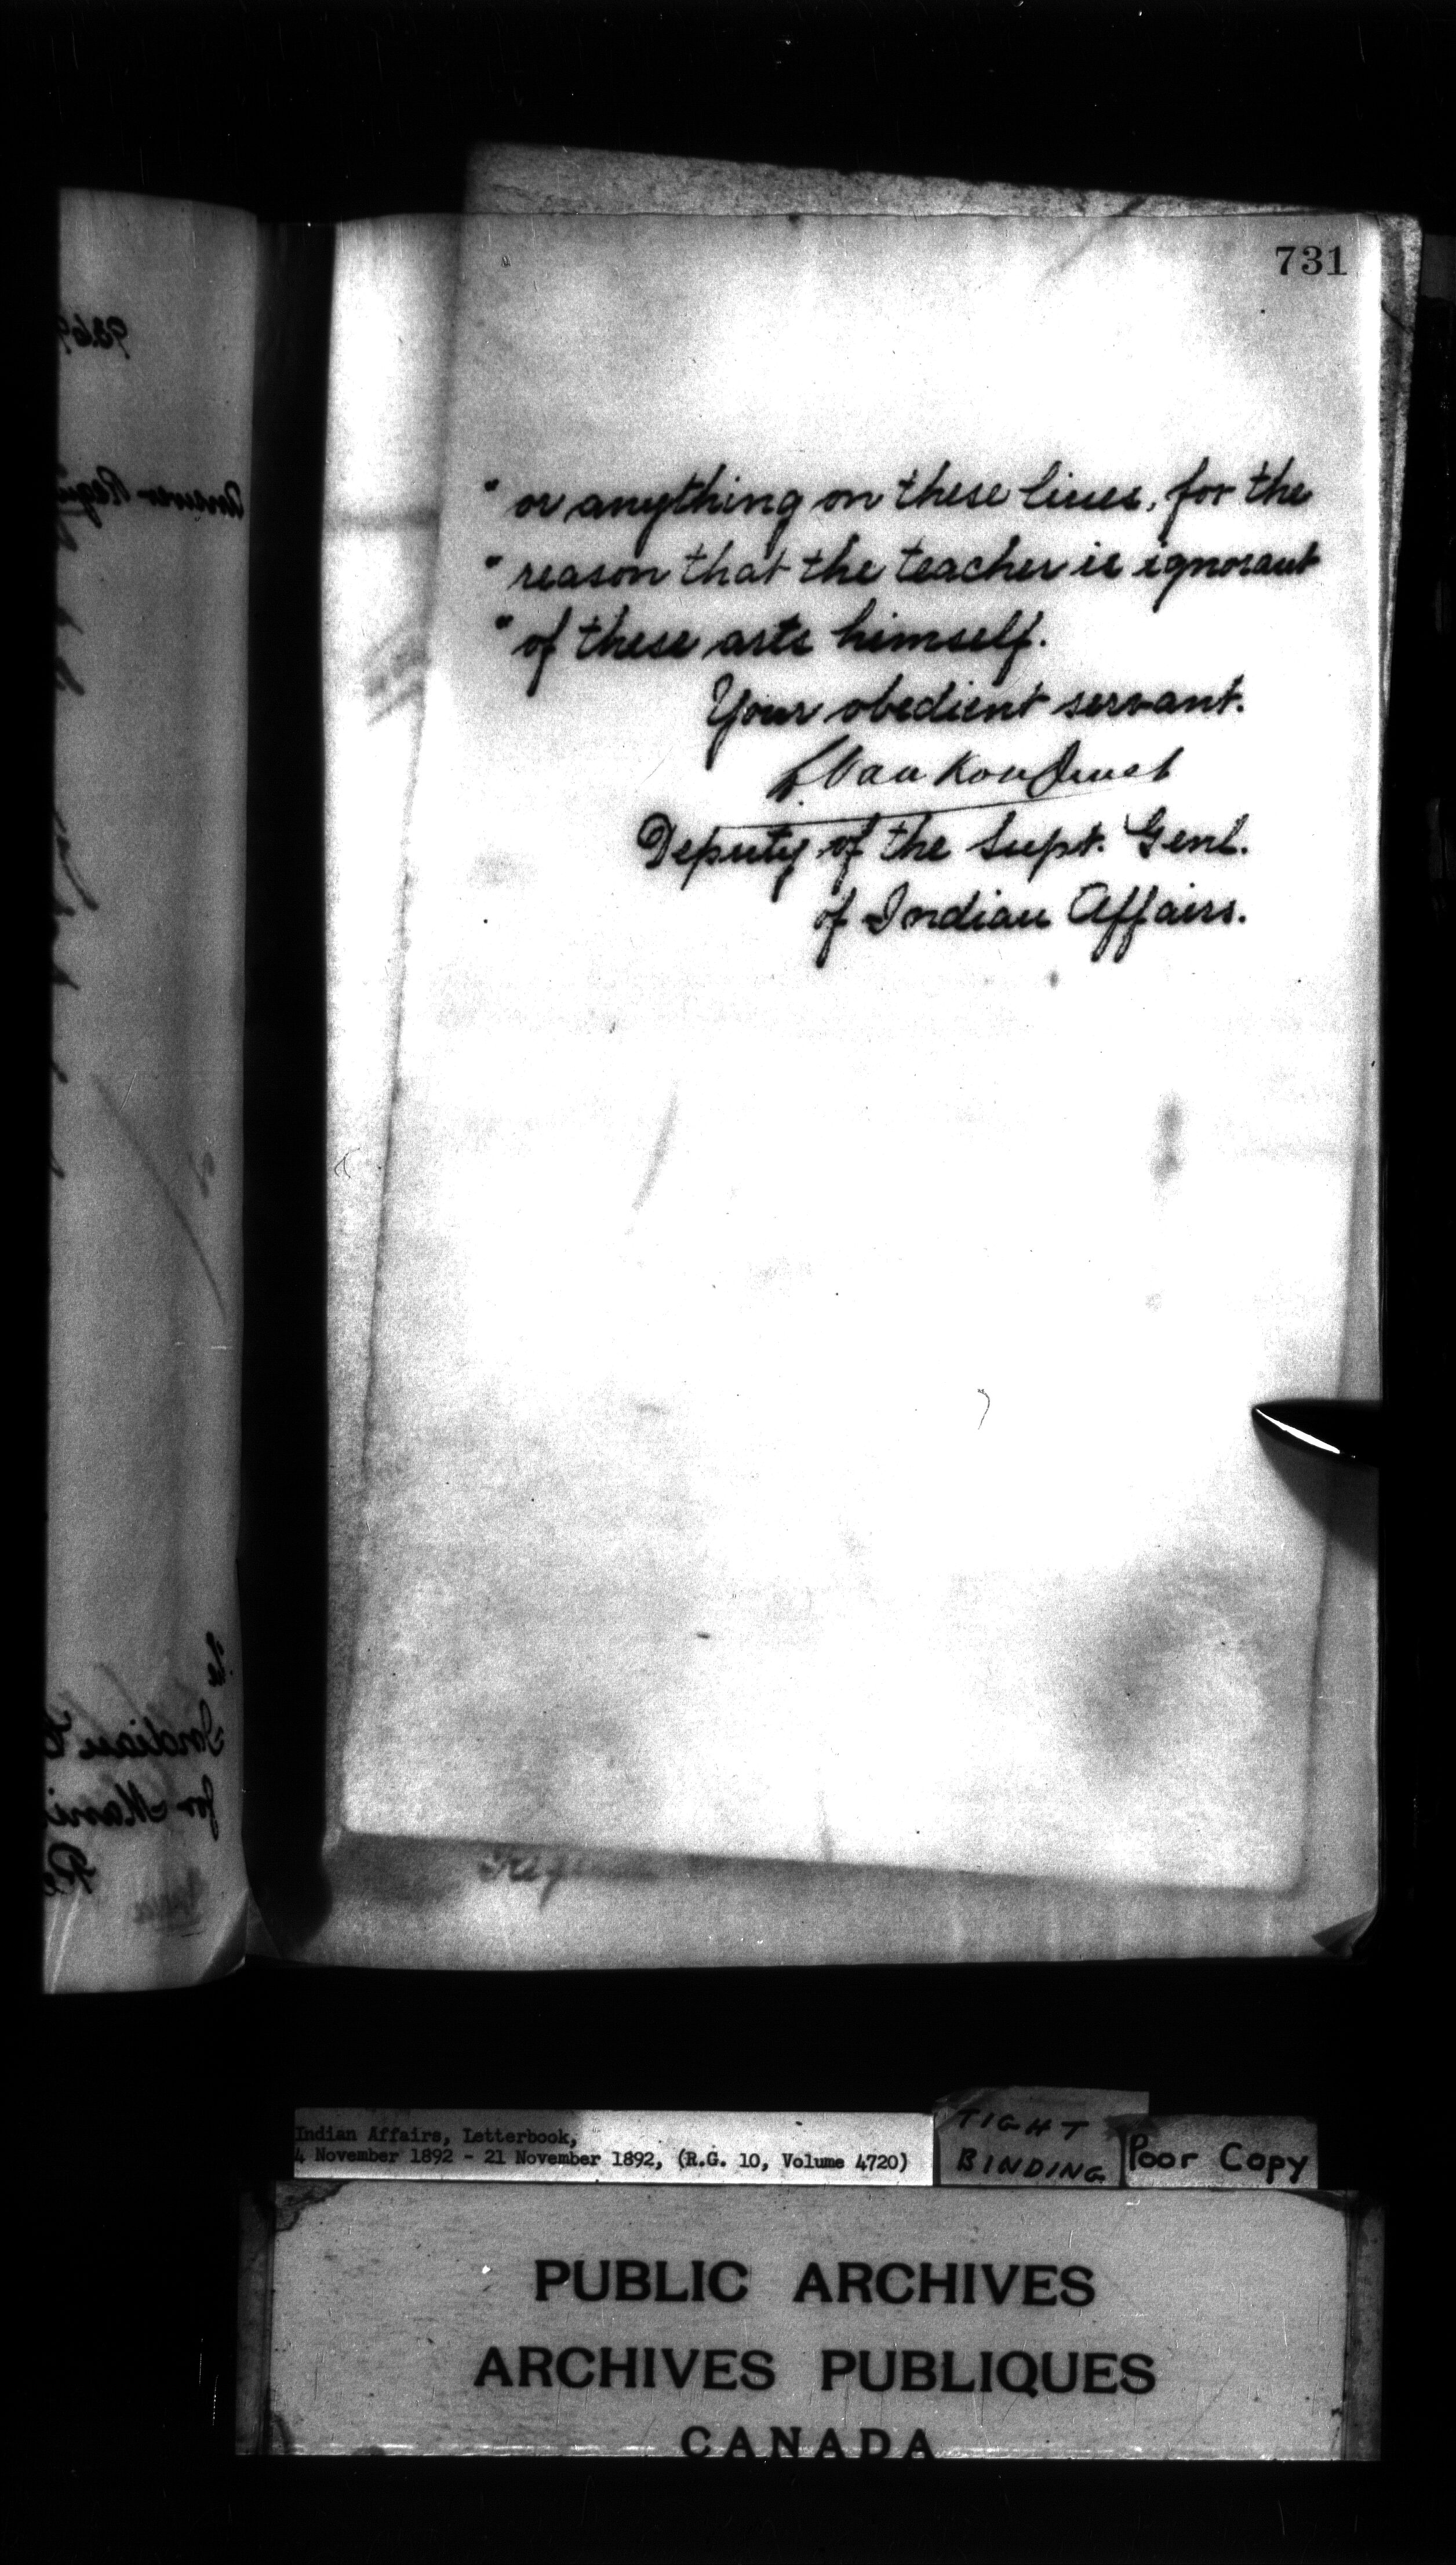 731
" or anything on these lines, for the
" reason that the teacher is ignorant
" of these arts himself.
Your obedient servant.
L. Van Koughnet
Deputy of the Supt. Genl.
of Indian Affairs.
Indian Affairs, Letterbook,
4 November 1892 - 21 November 1892, (R.G. 10, Volume 4720)
TIGHT
BINDING
Poor Copy
PUBLIC ARCHIVES
ARCHIVES PUBLIQUES
CANADA